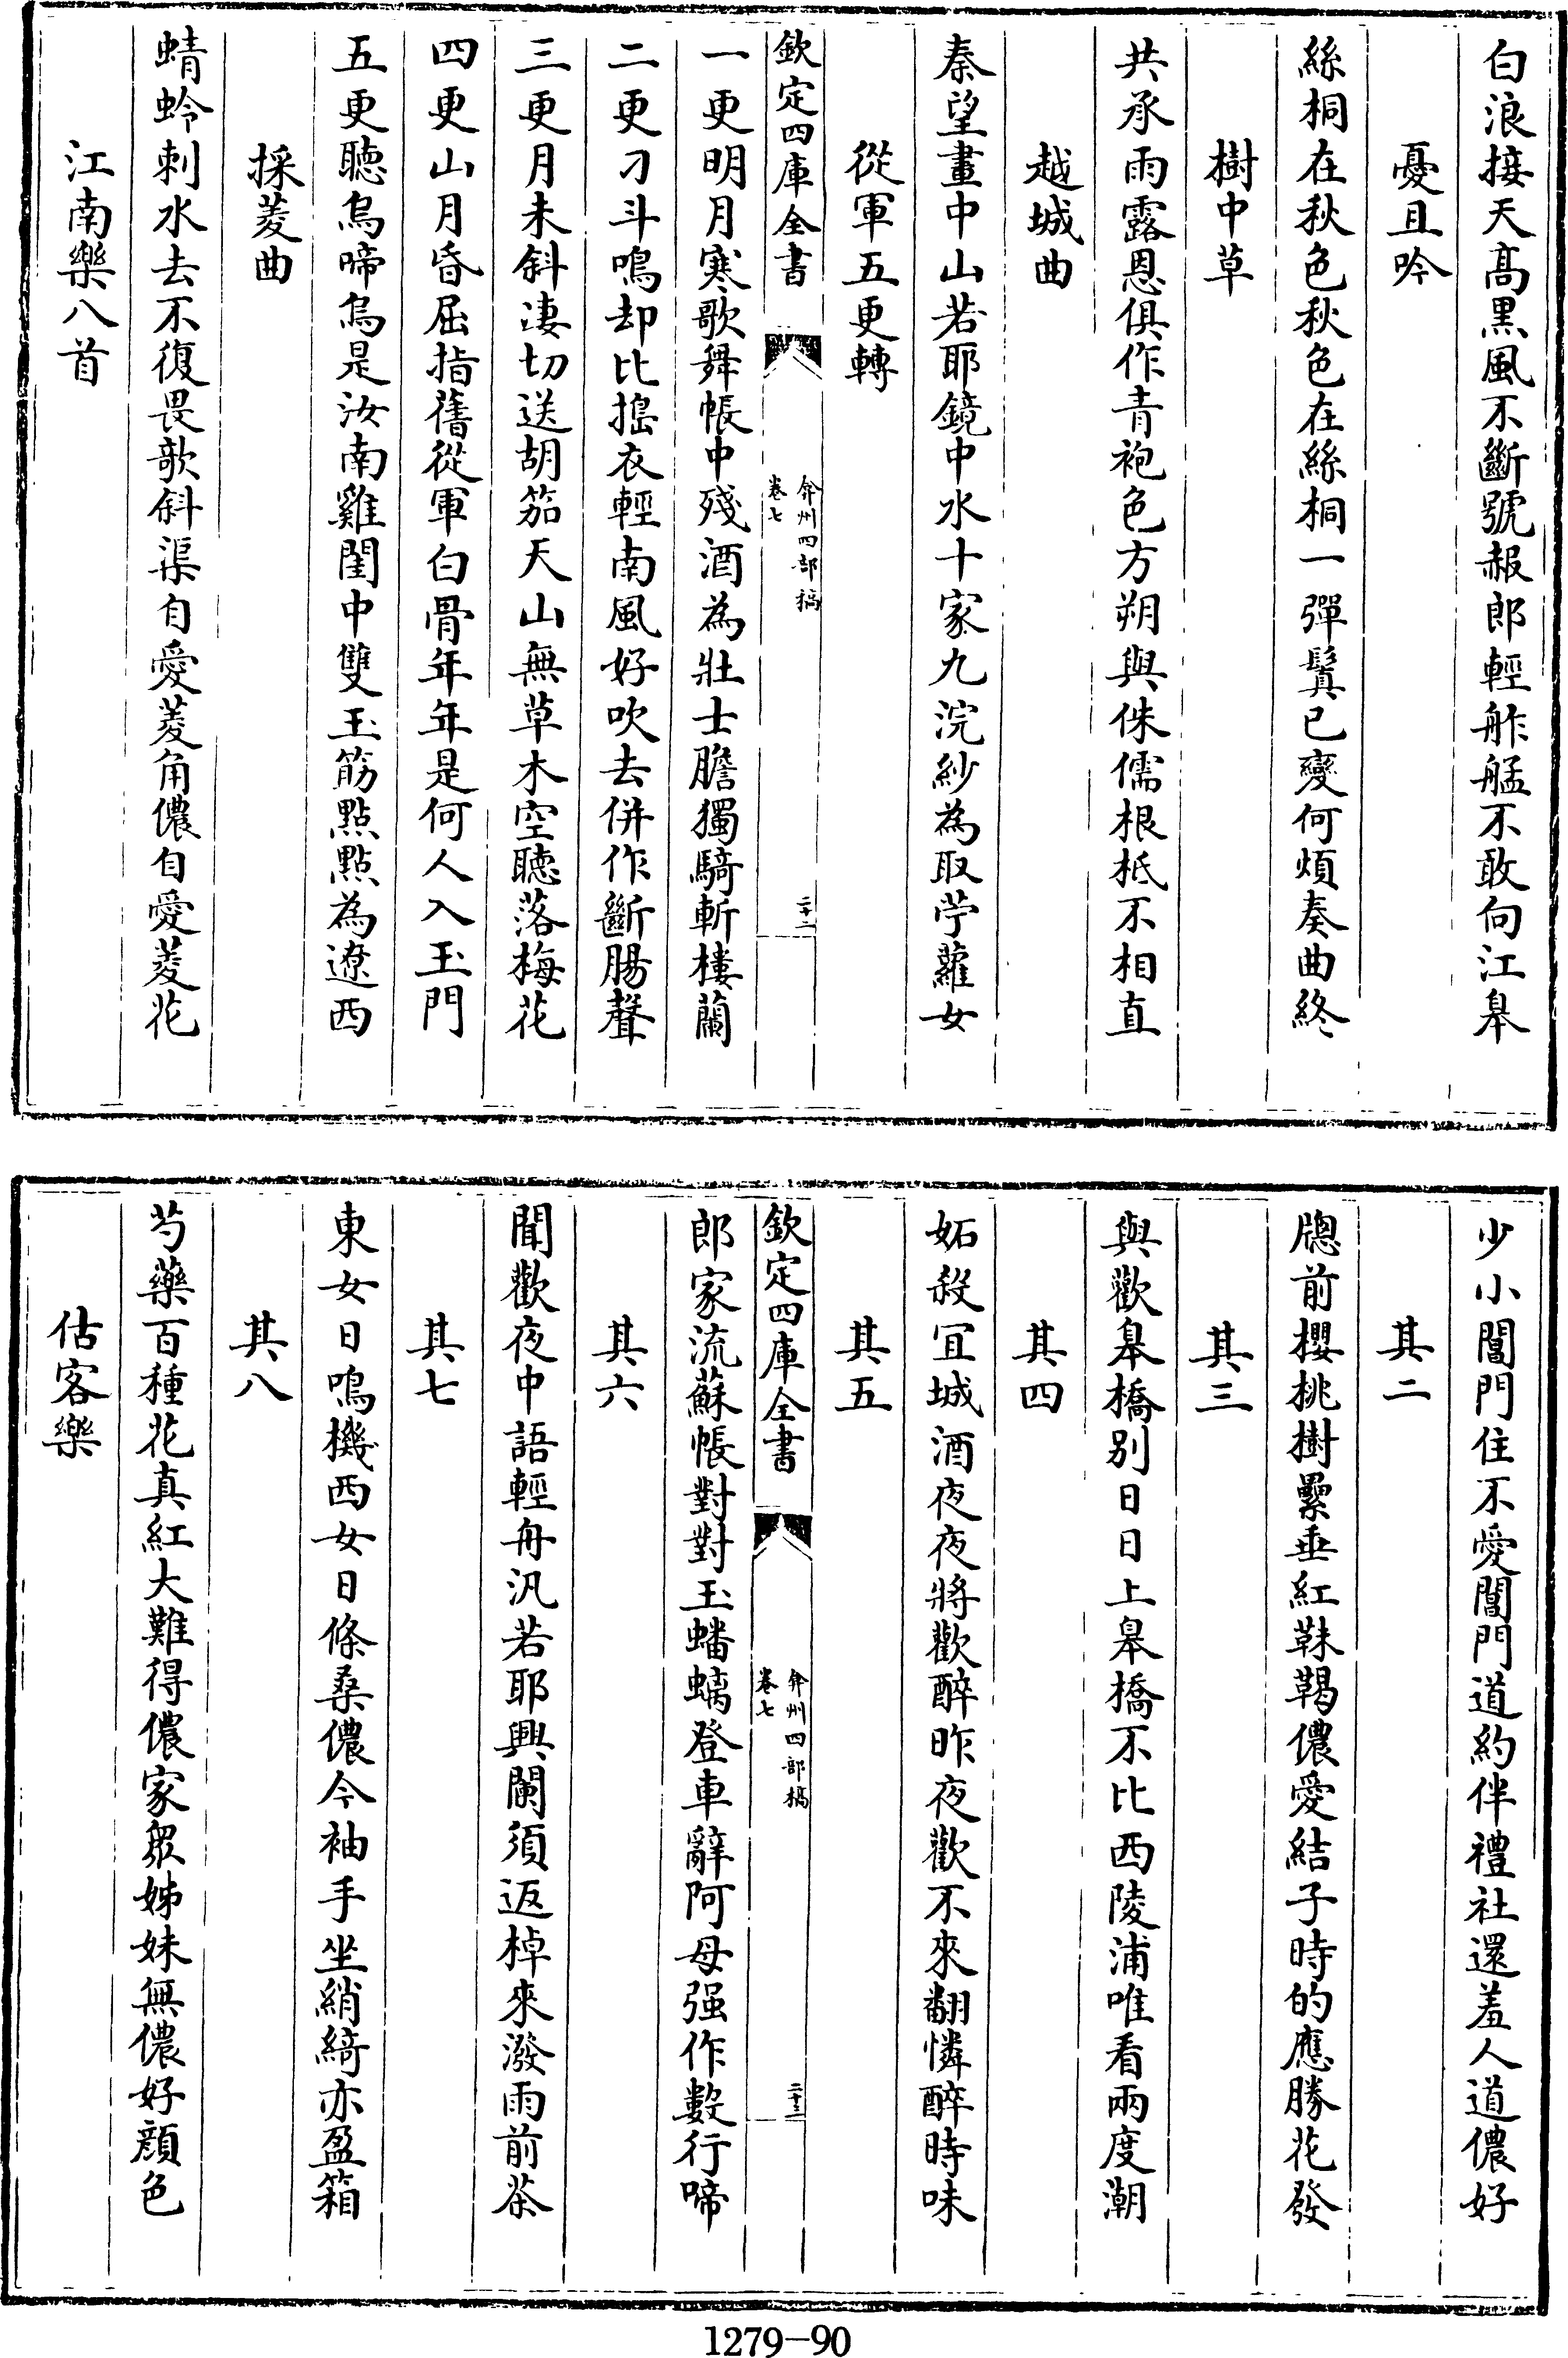 白浪接天高黒風不斷號報郎輕舴艋不敢向江皋
憂且吟
絲桐在秋色秋色在絲桐一彈鬢已變何煩奏曲終
樹中草
共承雨露恩俱作青袍色方朔與侏儒根柢不相直
越城曲
秦望畫中山若耶鏡中水十家九浣紗為取苧蘿女
從軍五更轉
欽定四庫全書
弇州四部稿
卷七
二十二
一更明月寒歌舞帳中殘酒為壯士膽獨騎斬樓蘭
二更刁斗鳴却比搗衣輕南風好吹去併作斷腸聲
三更月未斜凄切送胡笳天山無草木空聽落梅花
四更山月昏屈指舊從軍白骨年年是何人入玉門
五更聽烏啼烏是汝南雞閨中雙玉筋點點為遼西
採菱曲
蜻蛉刺水去不復畏欹斜渠自愛菱角儂自愛菱花
江南樂八首
少小閶門住不愛閶門道約伴禮社還羞人道儂好
其二
牕前櫻桃樹纍垂紅靺鞨儂愛結子時的應勝花發
其三
與歡皋橋别日日上皋橋不比西陵浦唯看兩度潮
其四
妬殺宜城酒夜夜將歡醉昨夜歡不來翻憐醉時味
其五
欽定四庫全書
弇州四部稿
卷七
二十三
郎家流蘇帳對對玉蟠螭登車辭阿母强作數行啼
其六
聞歡夜中語輕舟汎若耶興闌須返棹來潑雨前茶
其七
東女日鳴機西女日條桑儂今袖手坐綃綺亦盈箱
其八
芍藥百種花真紅大難得儂家眾姊妹無儂好顔色
估客樂
1279-90